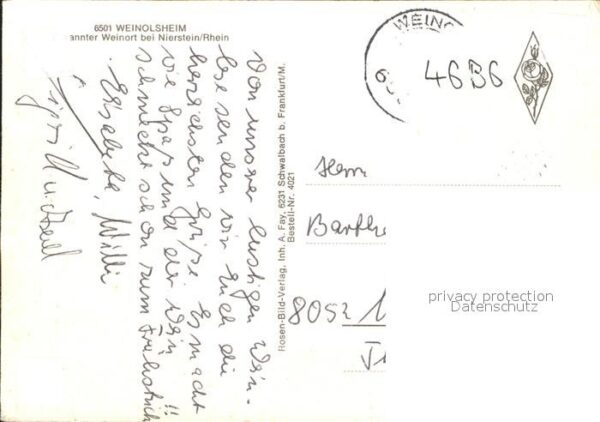 6501 WEINOLSHEIM
annter Weinort bei Nierstein/Rhein
Von unserer lustigen Wein-
lese senden wir Euch die
herzlichsten Grüße. Es macht
viel Spaß und der Wein
schmeckt schon zum Frühstück!!
Elisabeth, Willi
Sigrid u.
Rosen-Bild-Verlag, Inh. A. Fay, 6231 Schwalbach b. Frankfurt/M.
Bestell-Nr. 4021
WEINO
46B6
Herrn
Barthe
8052 1
privacy protection
Datenschutz